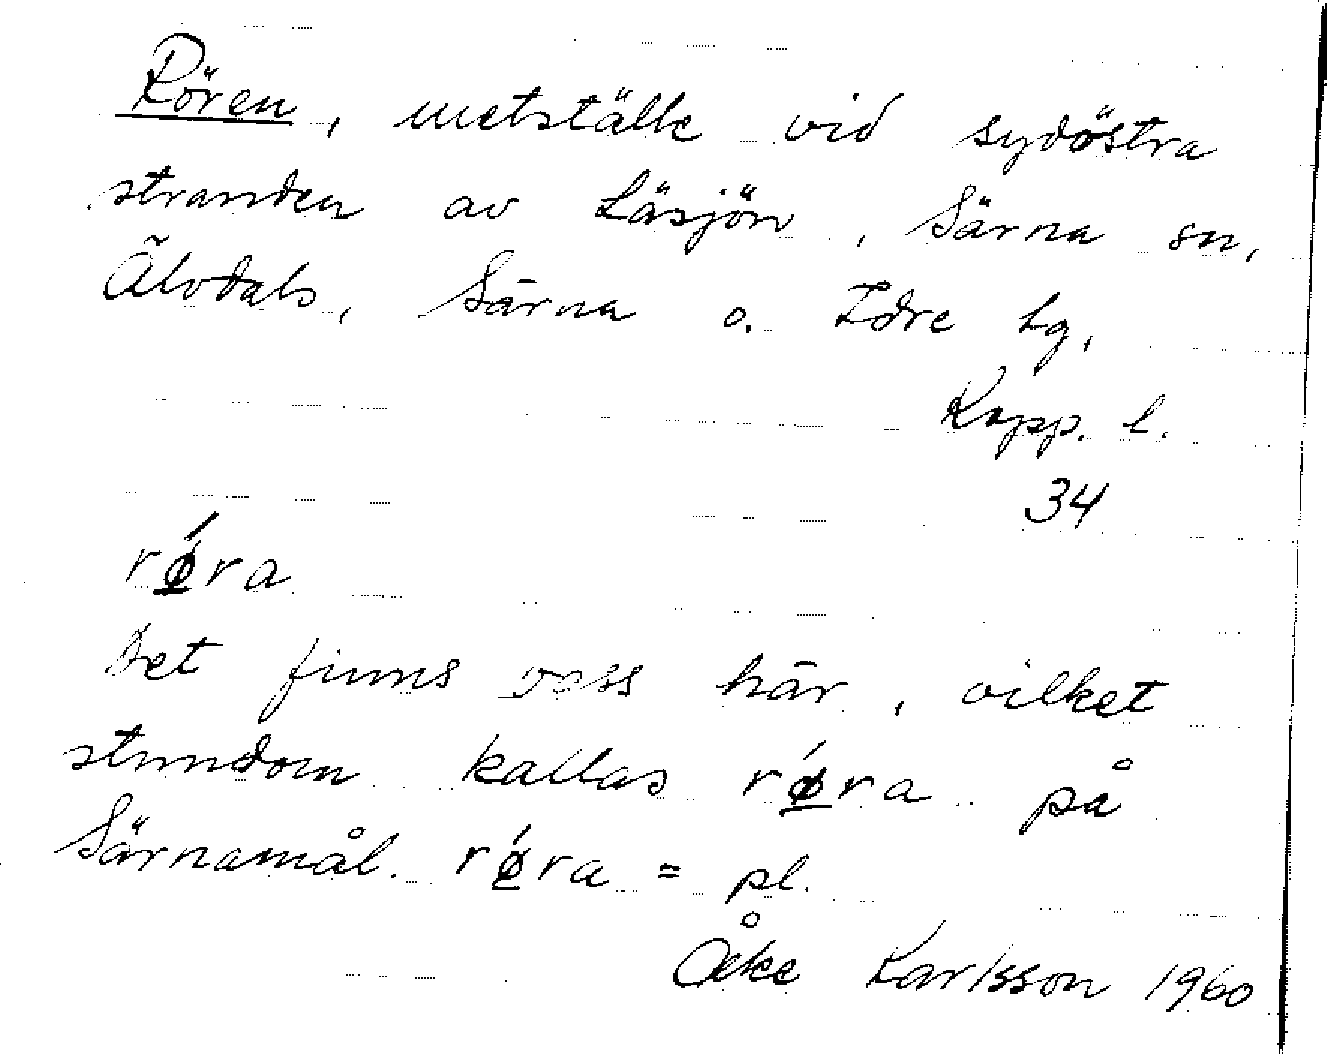 Rören, metställe vid sydöstra
stranden av Läsjön, Särna sn,
Älvdals, Särna o. Idre tg,
Kopp. l.
34
rǿ̱ra
Det finns vass här, vilket
stundom kallas rǿ̱ra på
Särnamål. rǿ̱ra = pl.
Åke Karlsson 1960